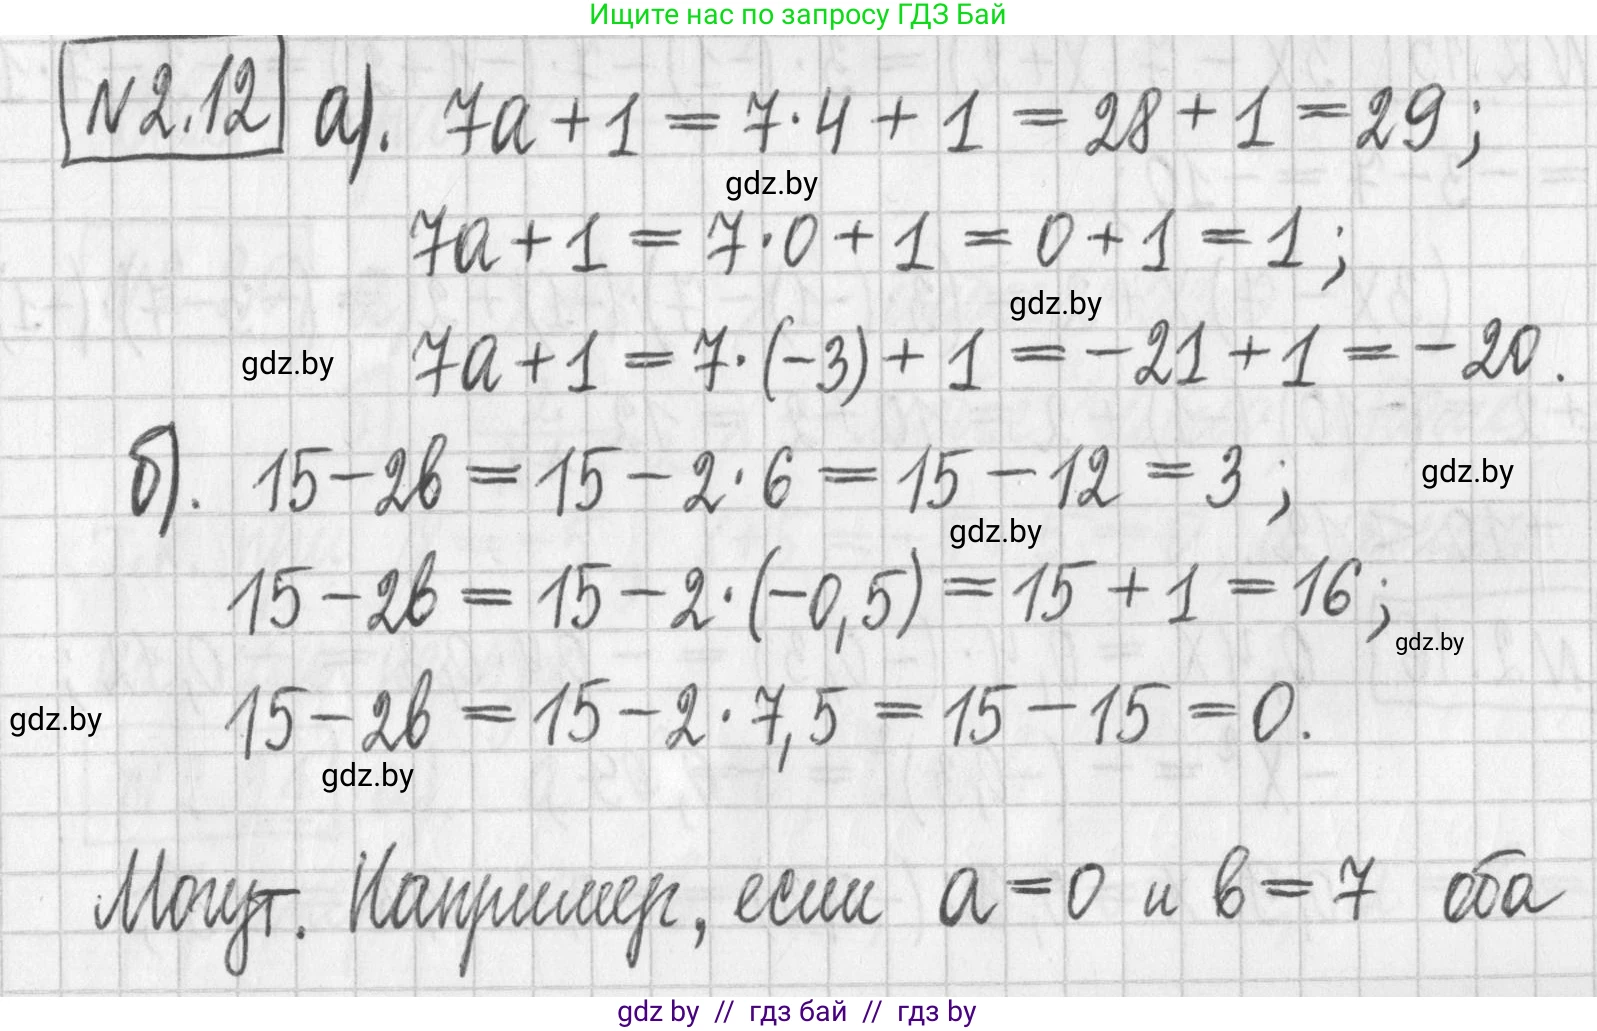 Ищите нас по запросу ГДЗ Бай
N2.12 а). 7a + 1 = 7·4 + 1 = 28 + 1 = 29;
gdz.by
7a + 1 = 7·0 + 1 = 0 + 1 = 1;
gdz.by
gdz.by 7a + 1 = 7·(-3) + 1 = -21 + 1 = -20.
б). 15 - 2в = 15 - 2·6 = 15 - 12 = 3; gdz.by
gdz.by
15 - 2в = 15 - 2·(-0,5) = 15 + 1 = 16;
gdz.by
gdz.by 15 - 2в = 15 - 2·7,5 = 15 - 15 = 0.
gdz.by
Могут. Например, если a = 0 и в = 7 оба
gdz by // гдз бай // гдз by